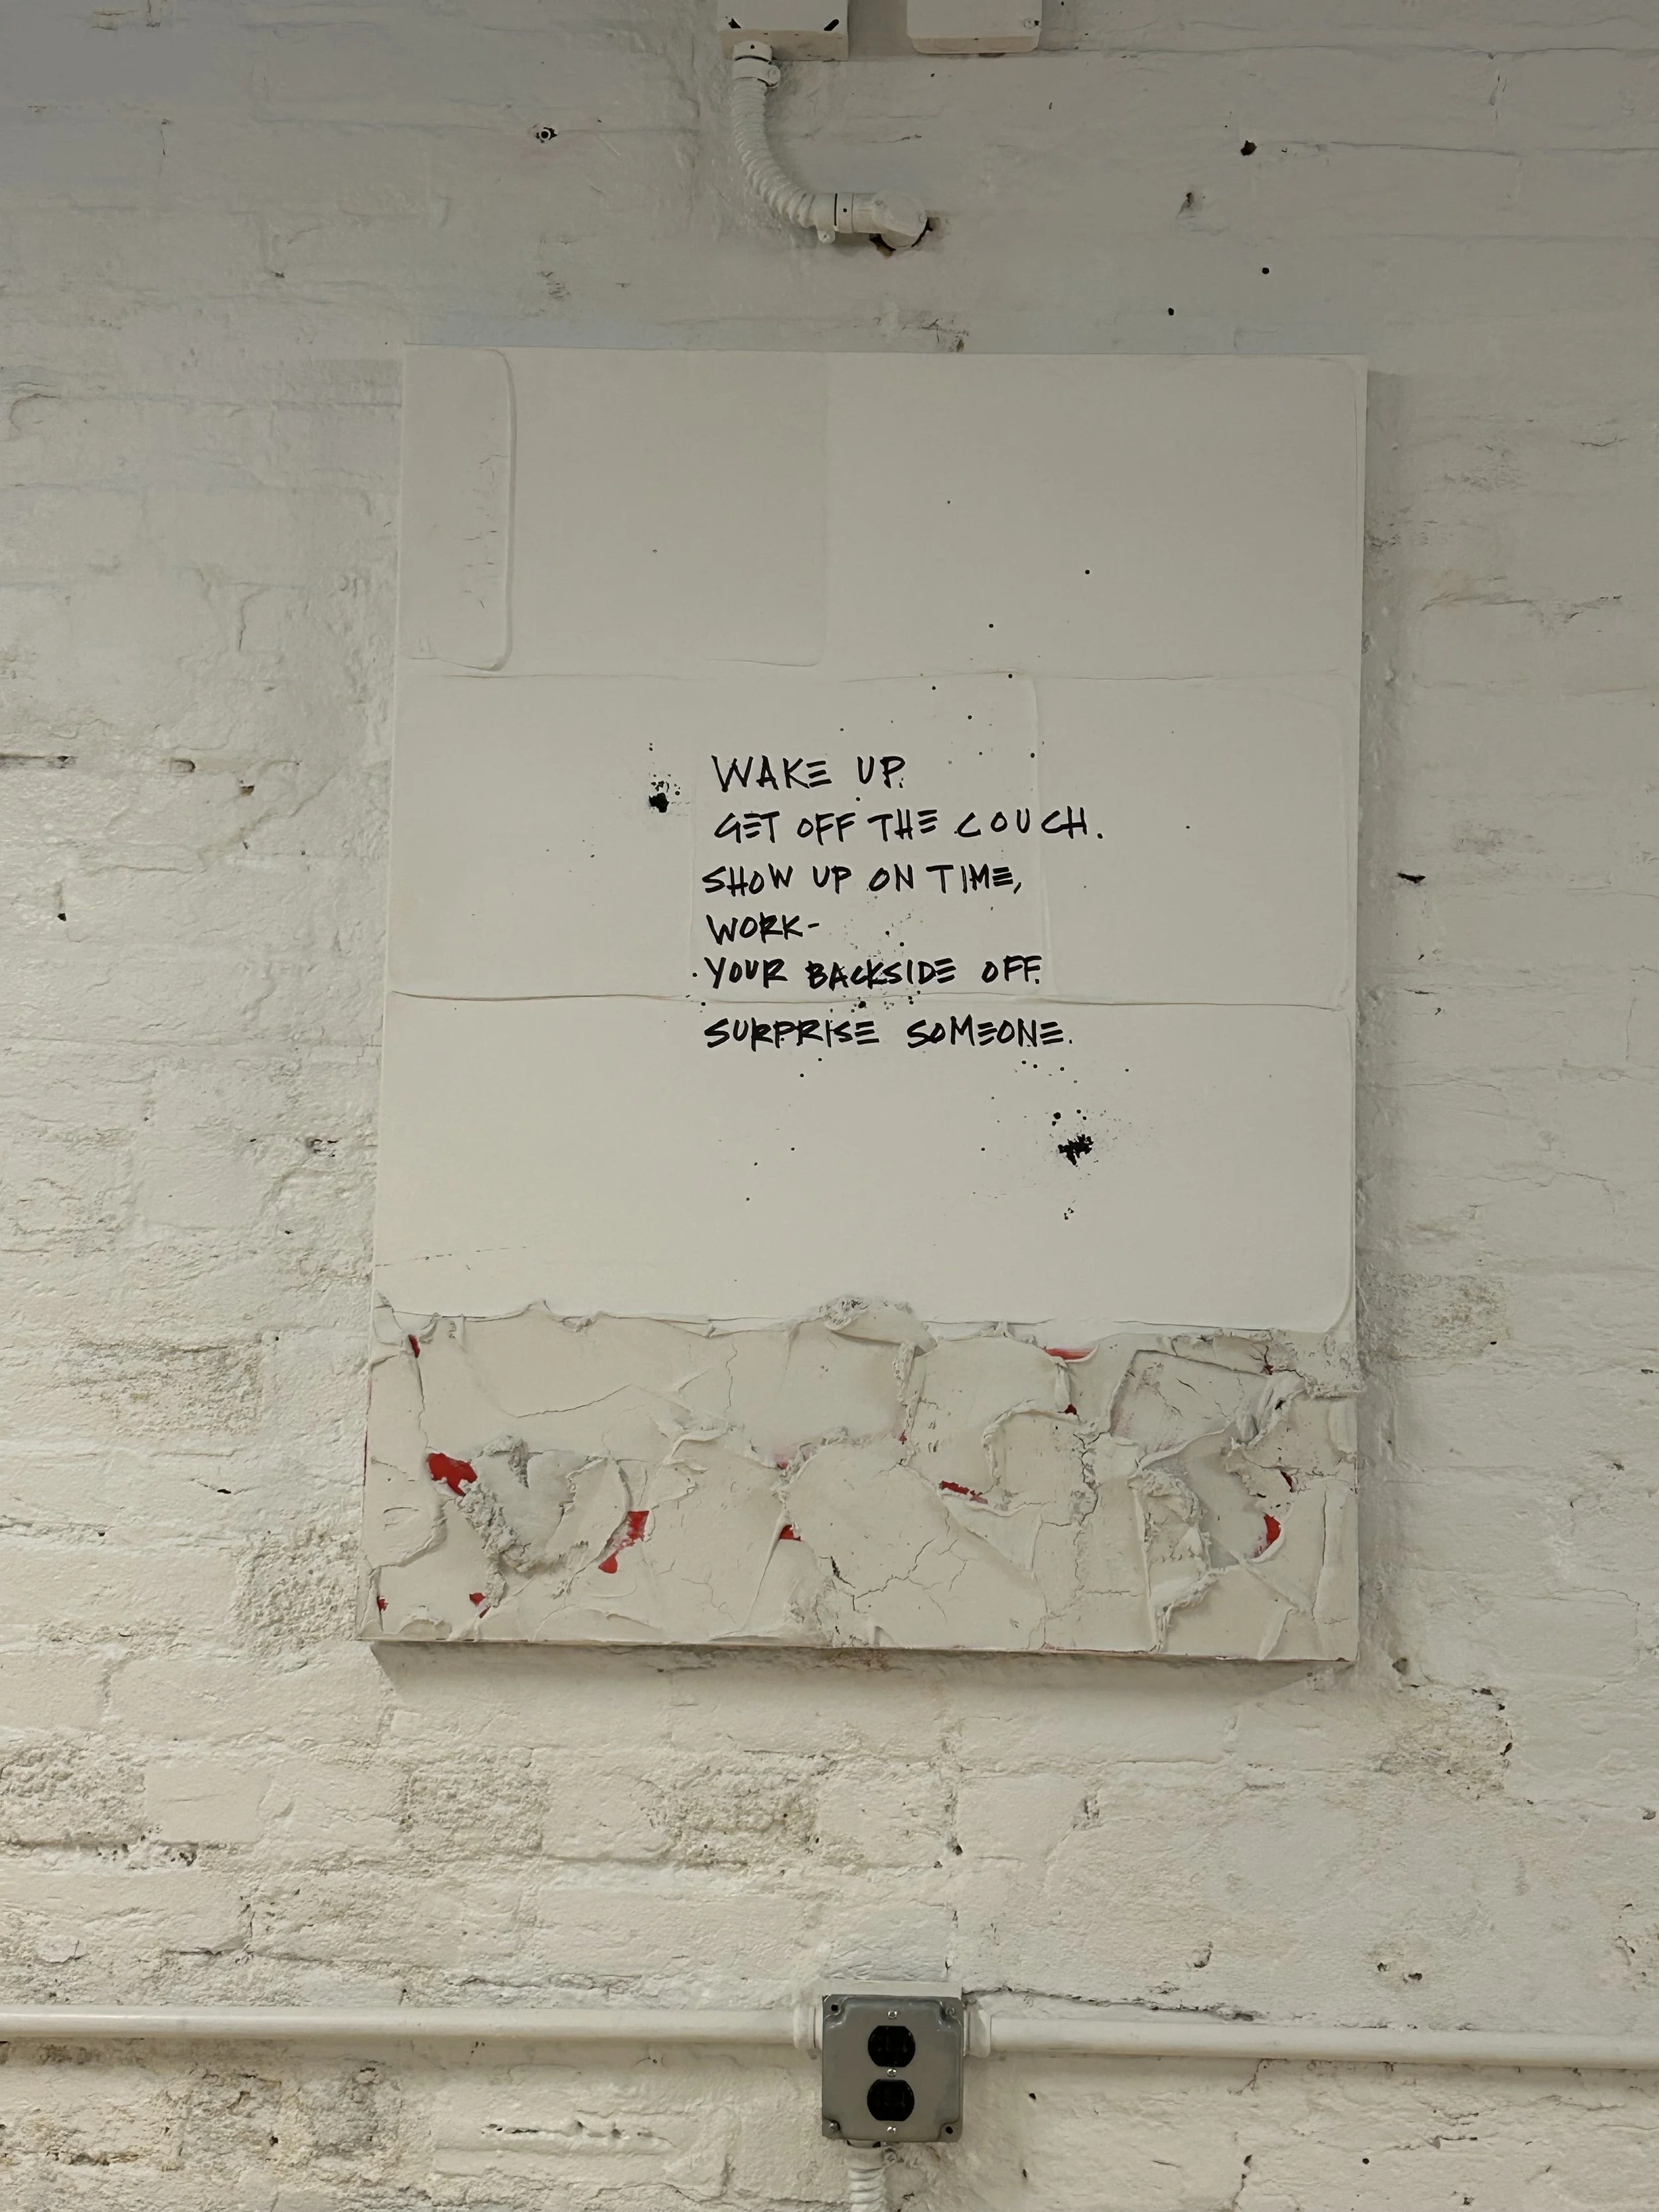 WAKE UP.
GET OFF THE COUCH.
SHOW UP ON TIME,
WORK-
YOUR BACKSIDE OFF.
SURPRISE SOMEONE.